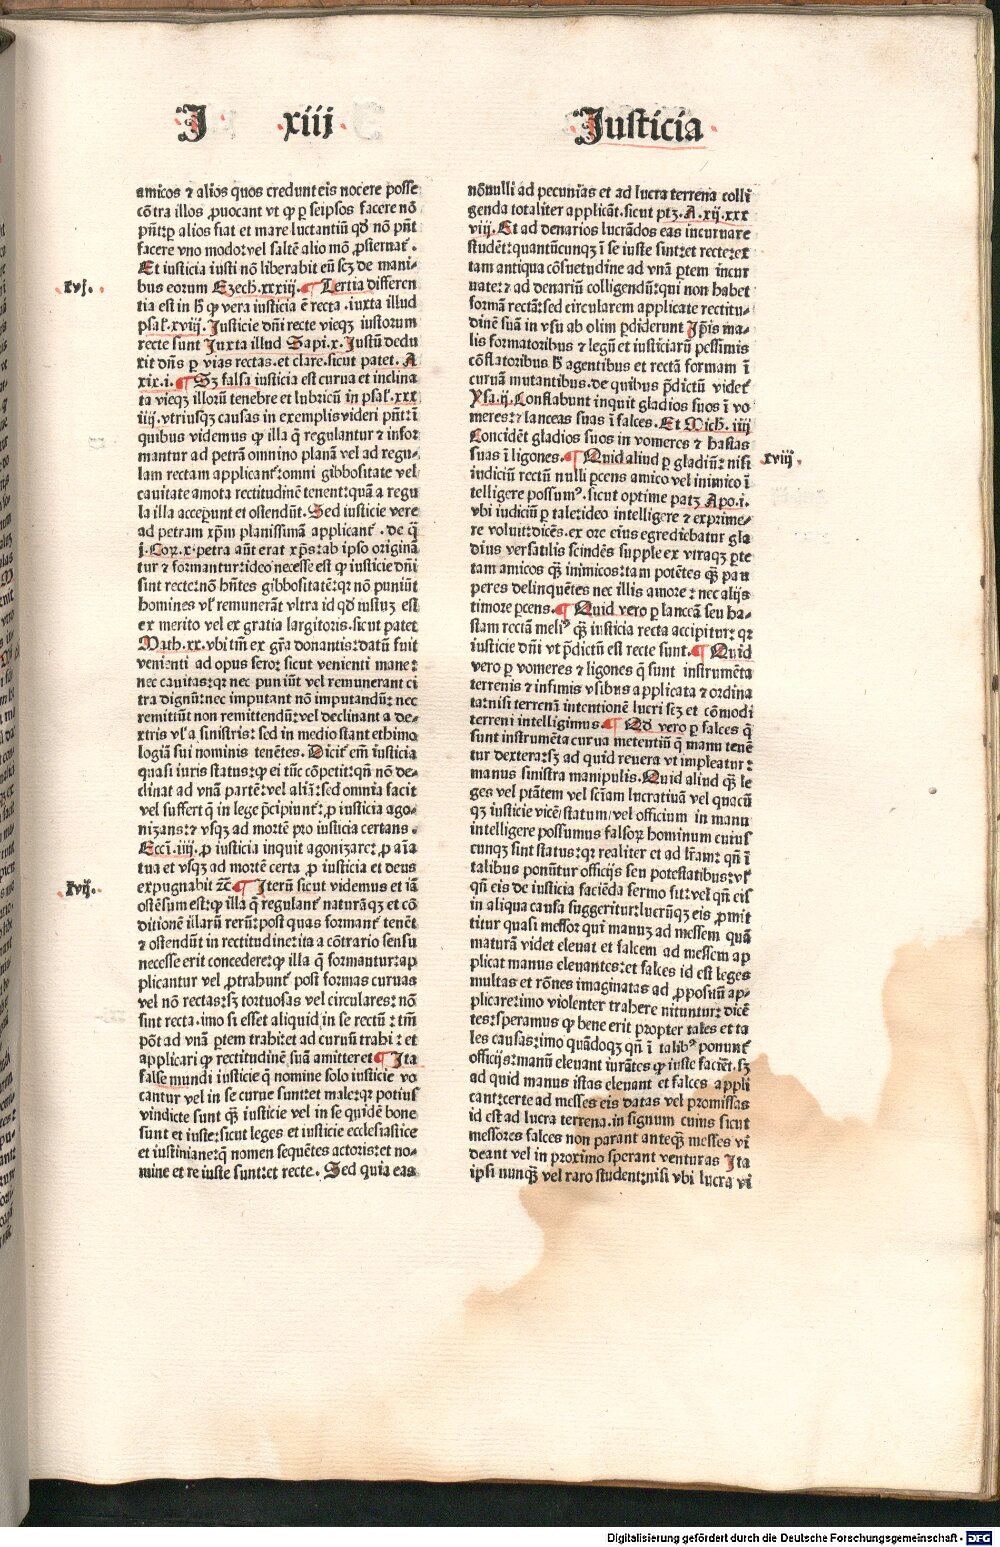 J xiij Justicia
amicos ⁊ alios quos credunt eis nocere posse
cōtra illos ꝓuocant vt ꝙ ꝑ seipsos facere nō
pn̄t:ꝑ alios fiat et mare luctantiū qđ nō pn̄t
facere vno modo:vel saltē alio mō ꝓsternat᷑.
Et iusticia iusti nō liberabit eū scꝫ de mani-
xvj.
bus eorum Ezech.xxxiij. ¶ Tertia differen
tia est in h̄ ꝙ vera iusticia ē recta. iuxta illud
psal̄.xviij. Justicie dn̄i recte vieqꝫ iustorum
recte sunt Juxta illud Sapi.x. Justū dedu
xit dn̄s ꝑ vias rectas.et clare.sicut patet. A
xix.i. ¶ Sꝫ falsa iusticia est curua et inclina
ta vieqꝫ illorū tenebre et lubricū in psal̄.xxx
iiij.vtriusqꝫ causas in exemplis videri pn̄t:ī
quibus videmus ꝙ illa q̄ regulantur ⁊ infor
mantur ad petrā omnino planā vel ad regu-
lam rectam applicant᷑:omni gibbositate vel
cauitate amota rectitudinē tenent:quā a regu
la illa acceperunt et ostendūt. Sed iusticie vere
ad petram xp̄m planissimā applicant᷑. de q̄
j. Cor.x.petra aūt erat xp̄s:ab ipso originā
tur ⁊ formantur:ideo necesse est ꝙ iusticie dn̄i
sint recte:nō hn̄tes gibbositatē:qꝛ nō puniūt
homines vl̓ remunerāt vltra id qđ iustuꝫ est
ex merito vel ex gratia largitoris.sicut patet
Math.xx.vbi tm̄ ex gr̄a donantis:datū fuit
venienti ad opus sero: sicut venienti mane:
nec cauitas:qꝛ nec puniūt vel remunerant ci
tra dignū:nec imputant nō imputandū: nec
remittūt non remittendū:vel declinant a de-
xtris vl̓ a sinistris: sed in medio stant ethimo
logiā sui nominis tenētes. Dicit᷑ em̄ iusticia
quasi iuris status:ꝙ ei tūc cōpetit:qn̄ nō de-
clinat ad vnā partē:vel aliā:sed omnia facit
vel suffert q̄ in lege p̄cipiunt᷑: ꝓ iusticia ago-
nizans:⁊ vsqꝫ ad mortē pro iusticia certans.
Ecci.iiij.ꝓ iusticia inquit agonizare: ꝓ aīa
tua et vsqꝫ ad mortē certa ꝓ iusticia et deus
xvij.
expugnabit ⁊c̄ ¶ Iterū sicut videmus et iā
ostēsum est:ꝙ illa q̄ regulant᷑ naturāqꝫ et cō
ditionē illarū rerū:post quas formant᷑ tenēt
⁊ ostendūt in rectitudine:ita a cōtrario sensu
necesse erit concedere:ꝙ illa q̄ formantur:ap
plicantur vel ꝓtrahunt᷑ post formas curuas
vel nō rectas:sꝫ tortuosas vel circulares: nō
sint recta.imo si esset aliquid in se rectū : tm̄
pōt ad vnā ꝑtem trahi:et ad curuū trahi : et
applicari ꝙ rectitudinē suā amitteret ¶ Ita
false mundi iusticie q̄ nomine solo iusticie vo
cantur vel in se curue sunt:et male:qꝛ potius
vindicte sunt qꝫ̄ iusticie vel in se quidē bone
sunt et iuste:sicut leges et iusticie ecclesiastice
et iustiniane:q̄ nomen sequētes actoris:et no-
mine et re iuste sunt:et recte. Sed quia eas
nōnulli ad pecunias et ad lucra terrena colli
genda totaliter applicāt.sicut ptꝫ.A.xij.xxx
viij.Et ad denarios lucrādos eas incuruare
studēt:quantūcunqꝫ ī se iuste sunt:et recte:ex
tam antiqua cōsuetudine ad vnā ꝑtem incur
uate:⁊ ad denariū colligendū:qui non habet
formā rectā:sed circularem applicate rectitu-
dinē suā in vsu ab olim ꝑdiderunt Ip̄is ma-
lis formatoribus ⁊ legū et iusticiarū pessimis
cōflatoribus h̄ agentibus et rectā formam ī
curuā mutantibus.de quibus p̄dictū videt᷑
Ysa.ij.Conflabunt inquit gladios suos ī vo
meres:⁊ lanceas suas ī falces. Et Mich.iiij
Concidēt gladios suos in vomeres ⁊ hastas
xviij.
suas ī ligones. ¶ Quid aliud ꝑ gladiū: nisi
iudiciū rectū nulli ꝑcens amico vel inimico ī
telligere possumꝰ.sicut optime patꝫ Apo.i.
vbi iudiciū ꝑ tale:ideo intelligere ⁊ exprime-
re voluit:dicēs.ex ore eius egrediebatur gla
dius versatilis scindēs supple ex vtraqꝫ ꝑte
tam amicos qꝫ̄ inimicos:tam potētes qꝫ̄ pau
peres delinquētes nec illis amore : nec alijs
timore ꝑcens. ¶ Quid vero ꝑ lanceā seu ha-
stam rectā meliꝰ qꝫ̄ iusticia recta accipitur: qꝛ
iusticie dn̄i vt p̄dictū est recte sunt. ¶ Quid
vero ꝑ vomeres ⁊ ligones q̄ sunt instrumēta
terrenis ⁊ infimis vsibus applicata ⁊ ordina
ta:nisi terrenā intentionē lucri scꝫ et cōmodi
terreni intelligimus. ¶ Qđ vero ꝑ falces q̄
sunt instrumēta curua metentiū q̄ manu tenē
tur dextera:sꝫ ad quid reuera vt impleatur:
manus sinistra manipulis.Quid aliud qꝫ̄ le
ges vel ptātem vel sciam lucratiuā vel quacū
qꝫ iusticie vicē/statum/vel officium in manu
intelligere possumus falsoꝝ hominum cuius
cunqꝫ sint status:qꝛ realiter et ad lr̄am: qn̄ ī
talibus ponūtur officijs seu potestatibus:vl̓
qn̄ eis de iusticia faciēda sermo fit:vel qn̄ eis
in aliqua causa suggeritur:lucrūqꝫ eis ꝓmit
titur quasi messor qui manuꝫ ad messem quā
maturā videt eleuat et falcem ad messem ap
plicat manus eleuantes:et falces id est leges
multas et rōnes imaginatas ad ꝓpositū ap-
plicare:imo violenter trahere nituntur: dicē
tes:speramus ꝙ bene erit propter tales et ta
les causas:imo quādoqꝫ qn̄ ī talibꝰ ponunt᷑
officijs:manū eleuant iurātes ꝙ iuste faciēt.sꝫ
ad quid manus istas eleuant et falces appli
cant:certe ad messes eis datas vel promissas
id est ad lucra terrena.in signum cuius sicut
messores falces non parant anteqꝫ̄ messes vi
deant vel in proximo sperant venturas Ita
ipsi nunqꝫ̄ vel raro student:nisi vbi lucra vi
Digitalisierung gefördert durch die Deutsche Forschungsgemeinschaft - DFG